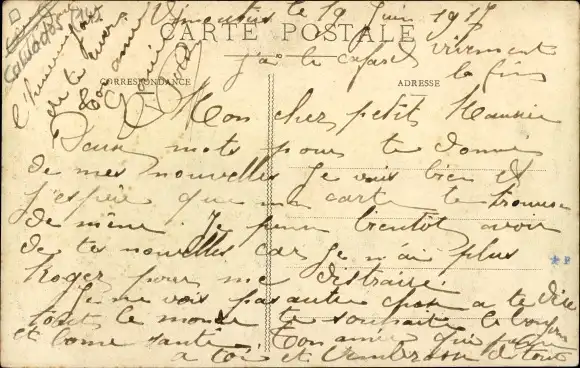 Vimoutiers le 19 Juin 1917
CARTE POSTALE
J'ai le cafard vivement
la fin
CORRESPONDANCE
ADRESSE
Mon cher petit Maurice
Deux mots pour te donner
de mes nouvelles Je vais bien et
j'espère que ma carte te trouvera
de même. Je pense bientôt avoir
de tes nouvelles car Je n'ai plus
Roger pour me distraire.
Je ne vois pas autre chose a te dire
tout le monde te souhaite le bonjour
et bonne santé. Ton amie qui pense
a toi et t'embrasse de tout
Calvados
de te
Ton amie